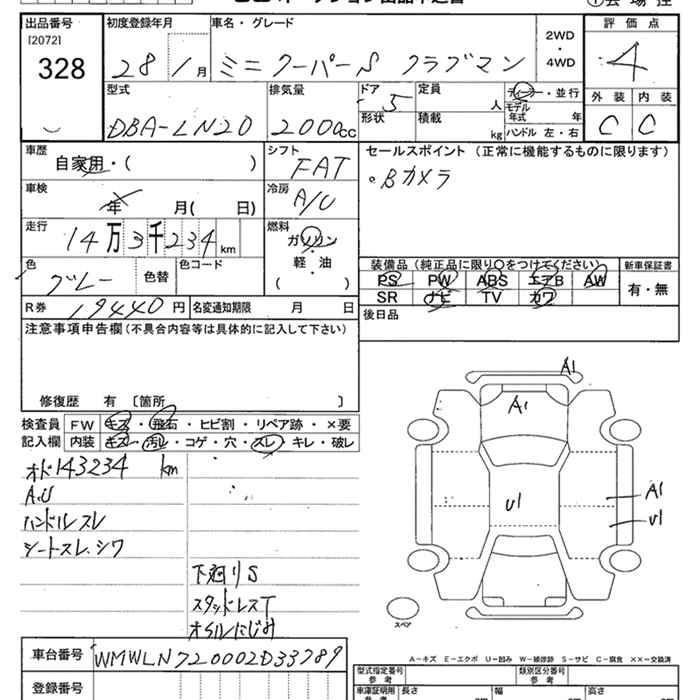 出品番号 初度登録年月 車名・グレード 2WD・4WD 評価点
[2072]
328 28 / 1月 ミニクーパーS クラブマン 4
型式 排気量 ドア 定員 ディーラー・並行 外装 内装
DBA-LN20 2000cc 5 人 モデル年式 年 C C
形状 積載 kg ハンドル 左・右
車歴 シフト セールスポイント (正常に機能するものに限ります)
自家用・( ) FAT 。Bカメラ
車検 冷房
年 月( 日) A/C
走行 燃料
14万3千234km ガソリン
軽・油
( )
色 色替 色コード 装備品 (純正品に限り○をつけてください) 新車保証書
グレー PS PW ABS エアB AW 有・無
SR ナビ TV カワ
R券 19440円 名変通知期限 月 日 後日品
注意事項申告欄(不具合内容等は具体的に記入して下さい)
修復歴 有 〔箇所 〕
検査員 FW キズ・飛石・ヒビ割・リペア跡・×要
記入欄 内装 キズ・汚れ・コゲ・穴・スレ・キレ・破レ
オド143234 km
ハンドルスレ
シートスレ.シワ
下廻りS
スタッドレスT
オイルにじみ
A1
A1
U1
A1
U1
スペア
車台番号 WMWLN720002D33789
A-キズ E-エクボ U-凹み W-補修跡 S-サビ C-腐食 ××-交換済
型式指定番号 参考 類別区分番号 参考
登録番号 車庫証明用 参考 長さ 幅 高さ